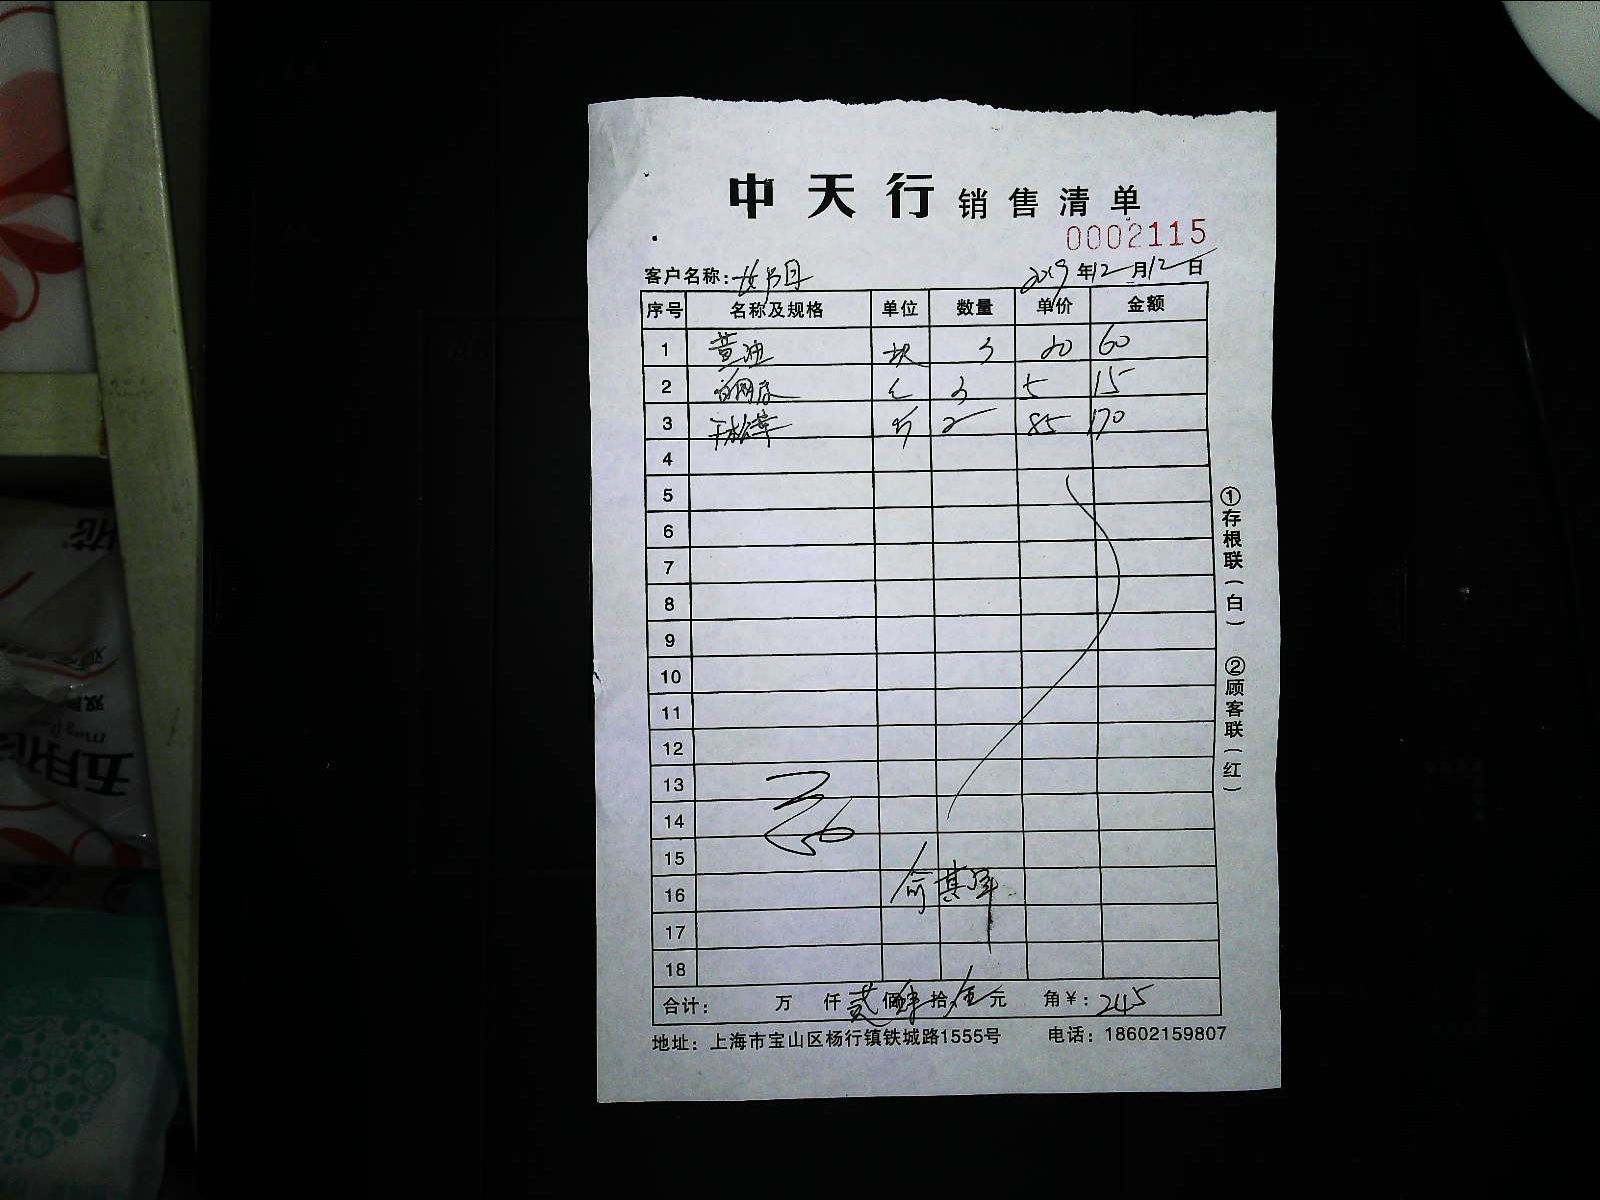 中天行 销售清单
0002115
客户名称:
2019年12月12日
序号 名称及规格 单位 数量 单价 金额
1 黄油 块 3 20 60
2 3 5 15
3 斤 2 85 170
4
5
6
7
8
9
10
11
12
13
14
15
16
17
18
合计: 万 仟 贰 佰 肆 拾 伍 元 角 ¥: 245
地址: 上海市宝山区杨行镇铁城路1555号 电话: 18602159807
①存根联(白) ②顾客联(红)
五月花